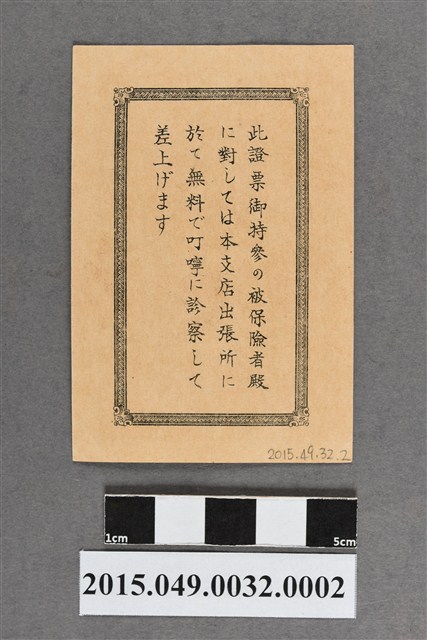 此證票御持參の被保險者殿
に對しては本支店出張所に
於て無料で叮嚀に診察して
差上げます
2015.49.32.2
1cm 5cm
2015.049.0032.0002